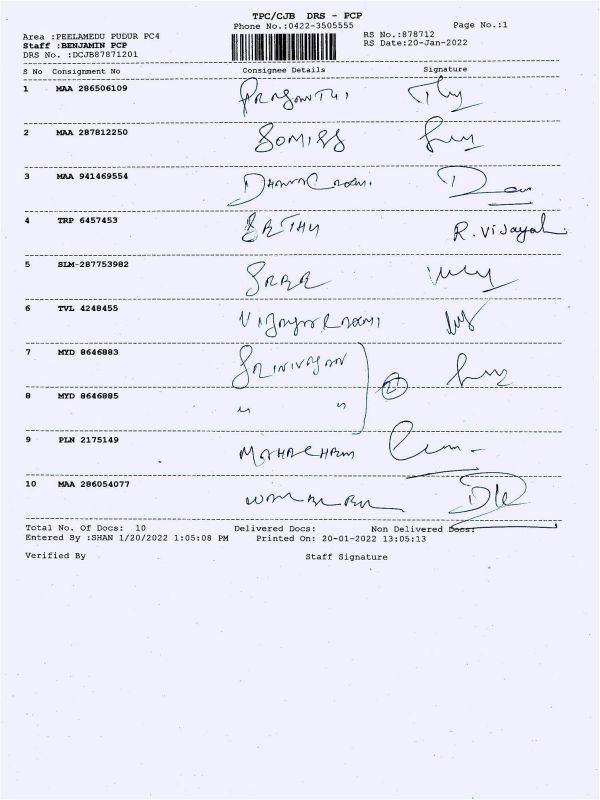 TPC/CJB DRS - PCP
Phone No.:0422-3505555 Page No.:1
Area :PEELAMEDU PUDUR PC4 RS No.:878712
Staff :BENJAMIN PCP RS Date:20-Jan-2022
DRS No. :DCJB87871201
S No Consignment No Consignee Details Signature
1 MAA 286506109
2 MAA 287812250
3 MAA 941469554
4 TRP 6457453 SETHU R. Vijayal
5 SLM-287753982 SREE
6 TVL 4248455
7 MYD 8646883 SRINIVASAN
8 MYD 8646885 " "
9 PLN 2175149
10 MAA 286054077
Total No. Of Docs: 10 Delivered Docs: Non Delivered Docs:
Entered By :SHAN 1/20/2022 1:05:08 PM Printed On: 20-01-2022 13:05:13
Verified By Staff Signature